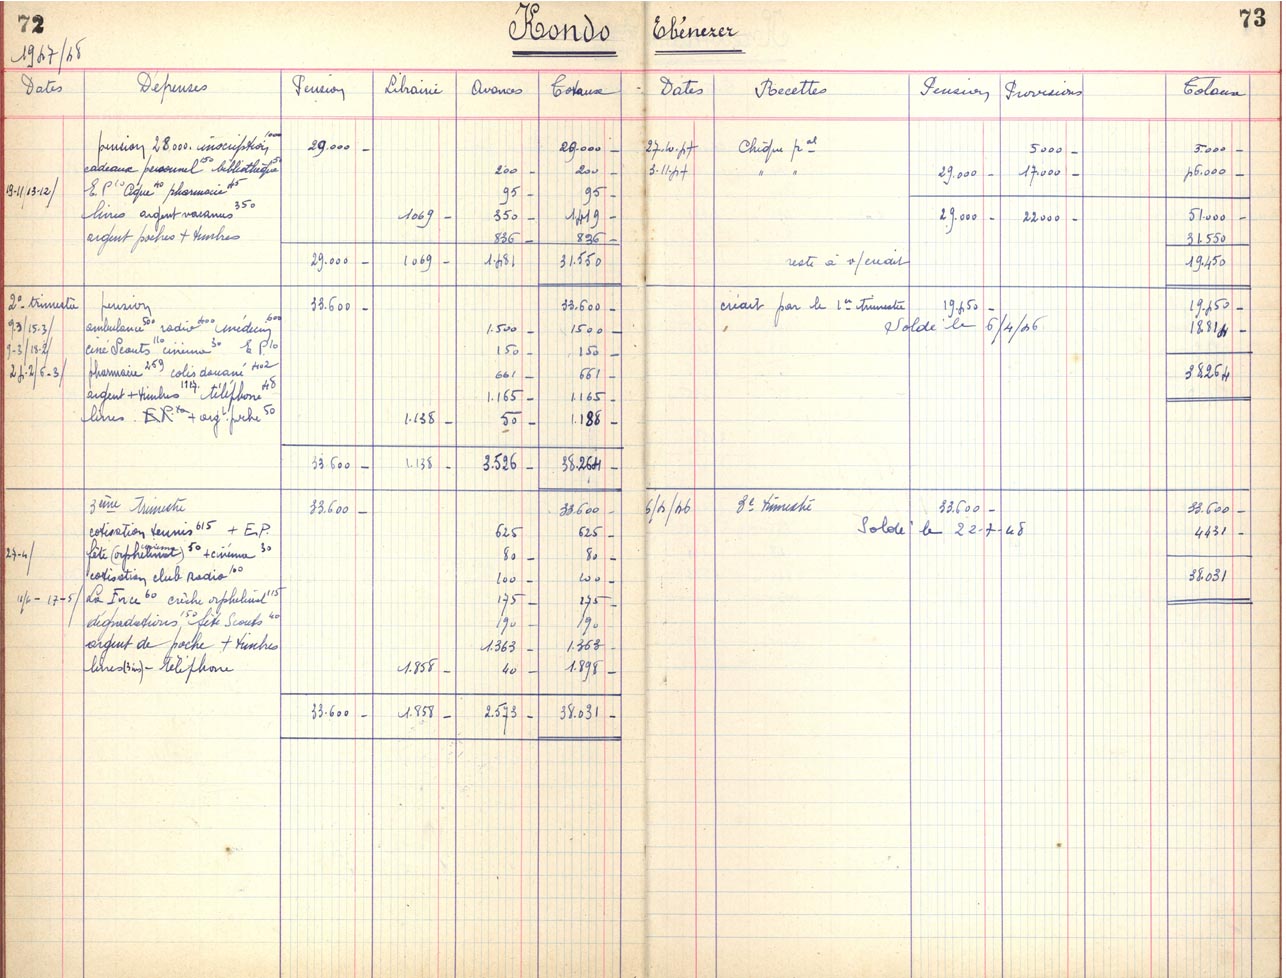 72
1947/48
Kondo Ebénezer
73
Dates Dépenses Pension Librairie Avances Totaux
Dates Recettes Pension Provisions Totaux
pension 28.000. inscription 1000 29.000 - 29.000 -
cadeaux personnel 150 bibliothèque 50 200 - 200 -
19-11/13-12/ E.P 10 40 pharmacie 45 95 - 95 -
livres argent vacances 350 1069 - 350 - 1419 -
argent poches + timbres 836 - 836 -
29.000 - 1069 - 1.481 31.550
27.10.47 Chèque pal 5000 - 5.000 -
3.11.47 " " 29.000 - 17.000 - 46.000 -
29.000 - 22000 - 51.000 -
31.550
reste à v/crédit 19.450
2e trimestre pension 33.600 - 33.600 -
9.3/15.3/ ambulance 500 radio 400 médecin 600 1.500 - 1500 -
9-3/18-2/ ciné Scouts 110 cinéma 30 E.P. 10 150 - 150 -
24-2/6-3/ pharmacie 259 colis douane 402 661 - 661 -
argent + timbres 1117 téléphone 48 1.165 - 1.165 -
livres E.P. + argt poche 50 1.138 - 50 - 1.188 -
33.600 - 1.138 - 3.526 - 38.264 -
crédit par le 1er trimestre 19.450 - 19.450 -
Soldé le 6/4/46 18.814 -
38.264
3ème Trimestre 33.600 - 33.600 -
cotisation tennis 615 + E.P. 625 - 625 -
27-4/ fête (orphelinat) 50 + cinéma 30 80 - 80 -
cotisation club radio 100 100 - 100 -
17-5/ La Force 60 crèche orphelinat 115 175 - 175 -
dégradations 150 fête Scouts 40 190 - 190 -
argent de poche + timbres 1.363 - 1.363 -
livres - téléphone 1.858 - 40 - 1.898 -
33.600 - 1.858 - 2.573 - 38.031 -
6/4/46 3e trimestre 33.600 - 33.600 -
Soldé le 22-7-48 4431 -
38.031